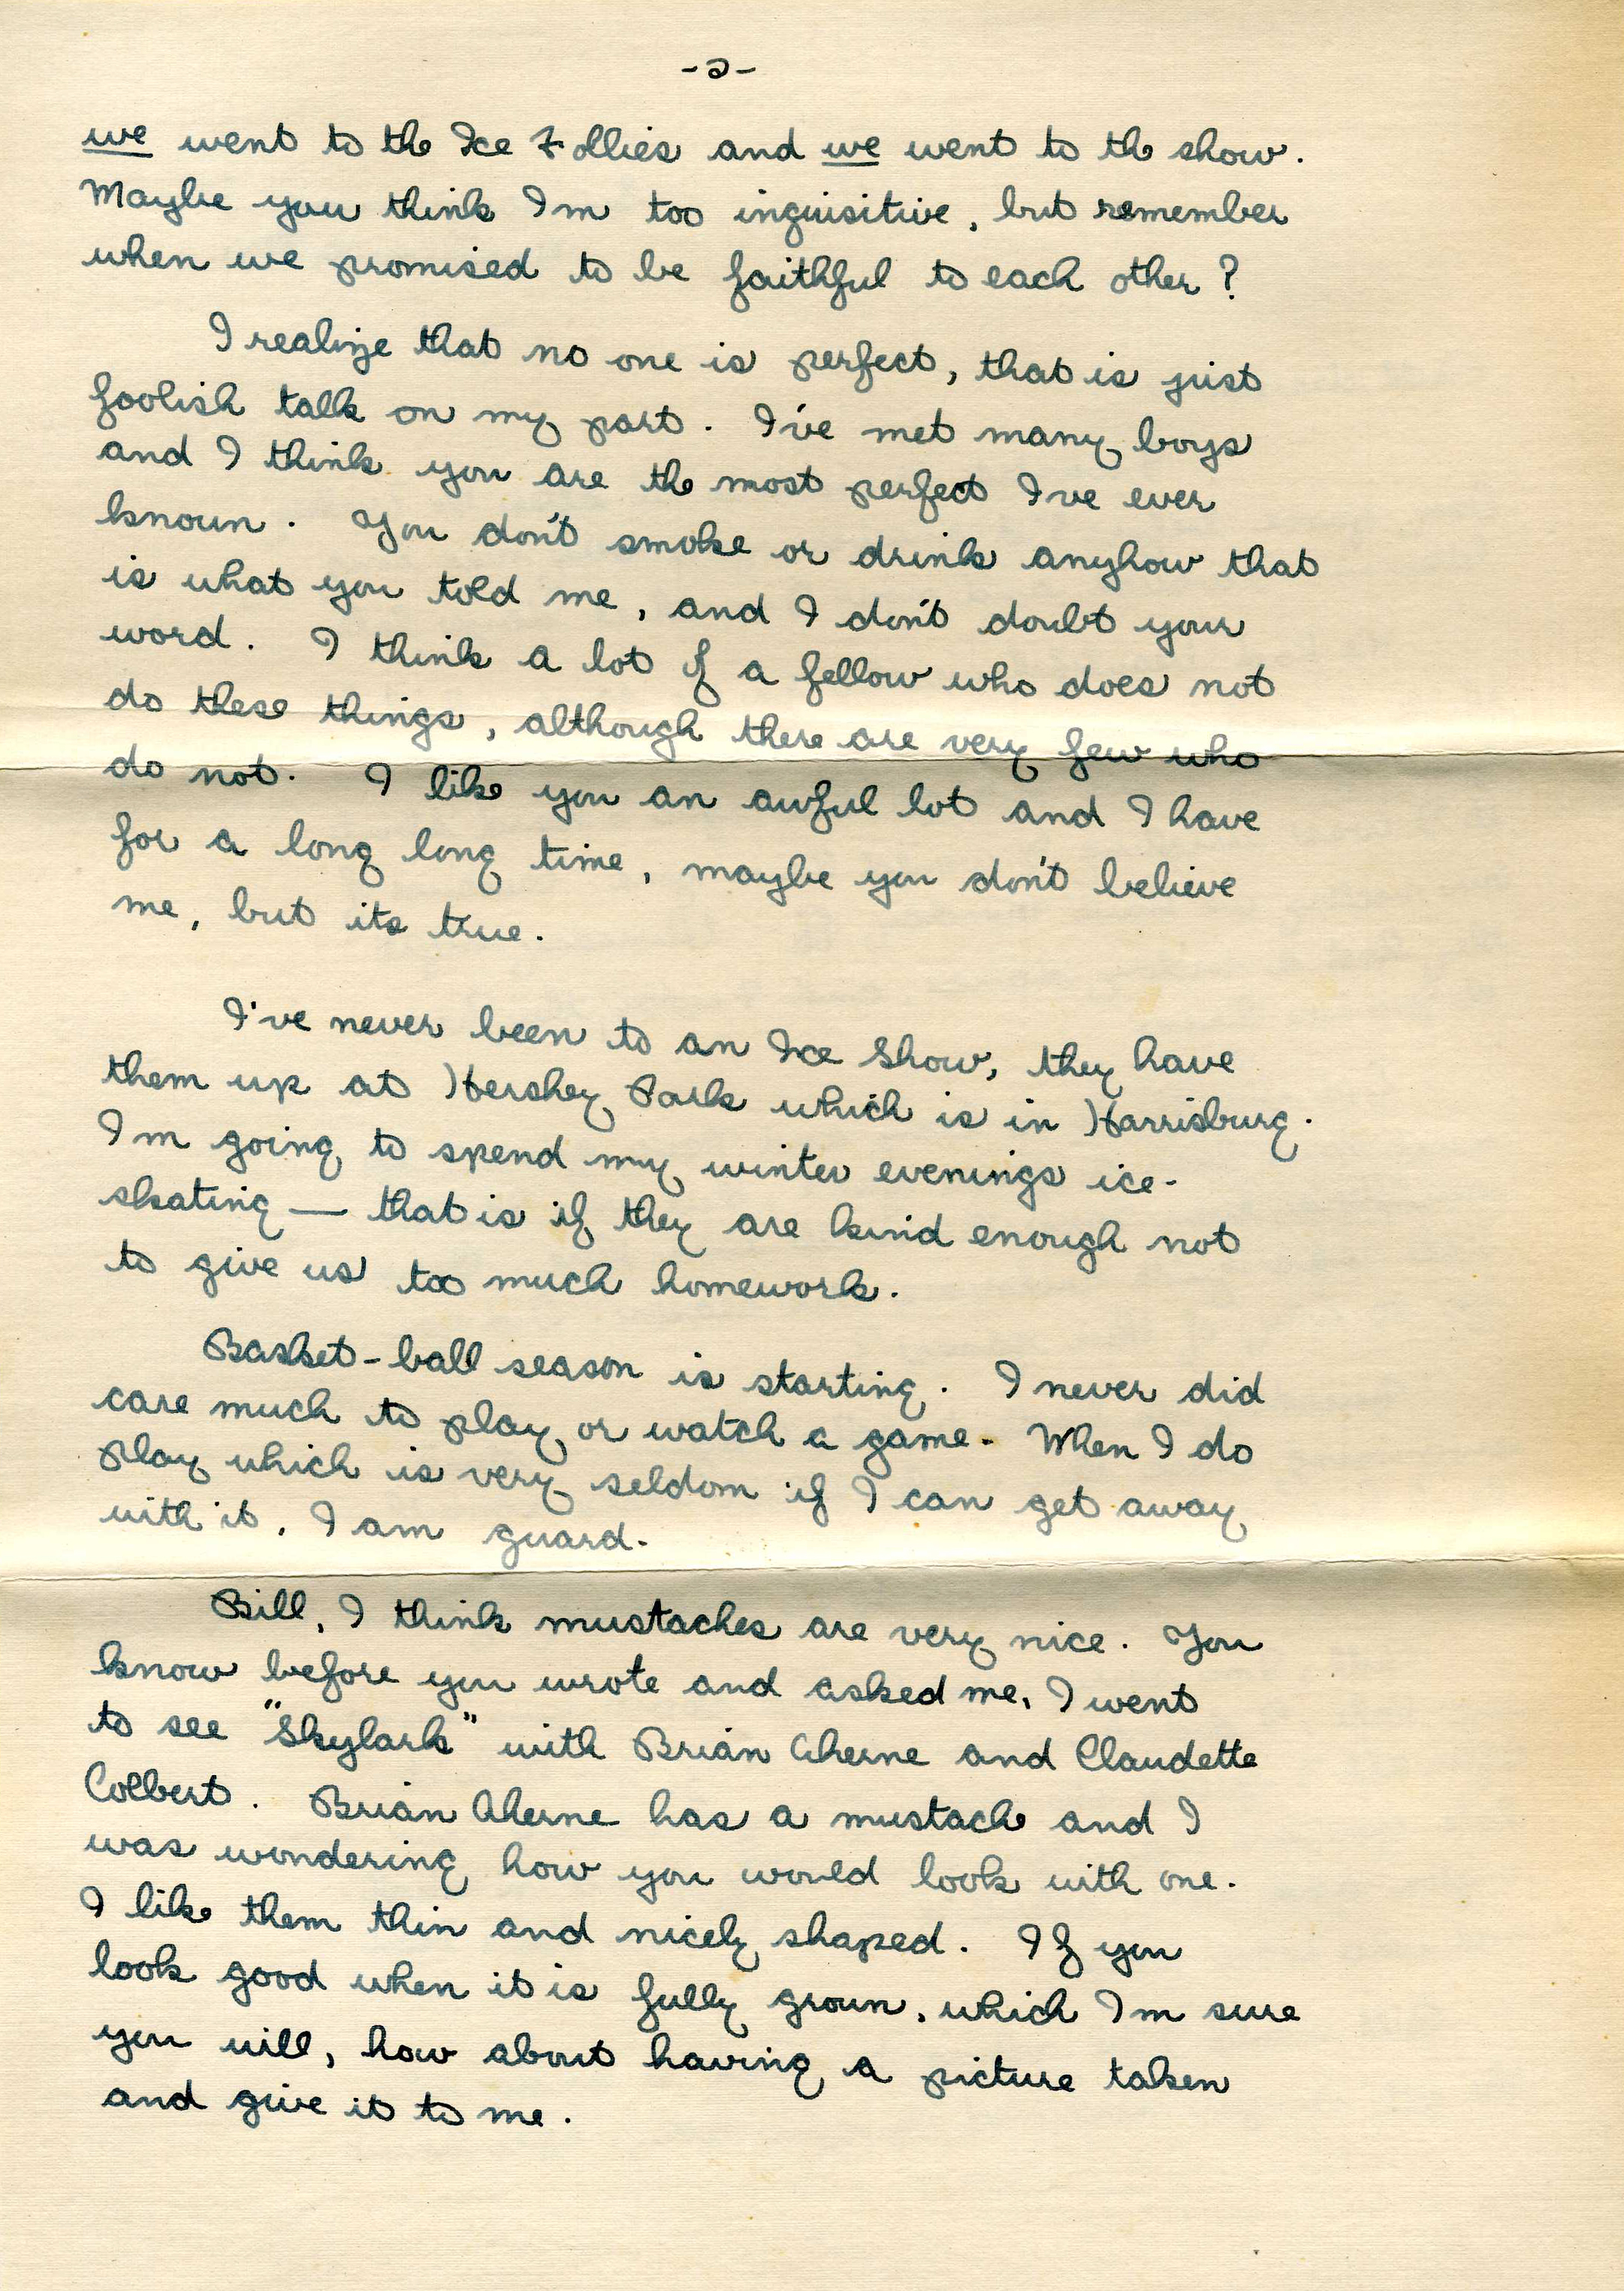 -2-
we went to the Ice Follies and we went to the show.
Maybe you think Im too inquisitive, but remember
when we promised to be faithful to each other?
I realize that no one is perfect, that is just
foolish talk on my part. I've met many boys
and I think you are the most perfect I've ever
known. You don't smoke or drink anyhow that
is what you told me, and I don't doubt your
word. I think a lot of a fellow who does not
do these things, although there are very few who
do not. I like you an awful lot and I have
for a long long time, maybe you don't believe
me, but its true.
I've never been to an Ice Show, they have
them up at Hershey Park which is in Harrisburg.
Im going to spend my winter evenings ice-
skating — that is if they are kind enough not
to give us too much homework.
Basket-ball season is starting. I never did
care much to play or watch a game. When I do
play which is very seldom if I can get away
with it, I am guard.
Bill, I think mustaches are very nice. You
know before you wrote and asked me, I went
to see "Skylark" with Brian Aherne and Claudette
Colbert. Brian Aherne has a mustache and I
was wondering how you would look with one.
I like them thin and nicely shaped. If you
look good when it is fully grown, which Im sure
you will, how about having a picture taken
and give it to me.